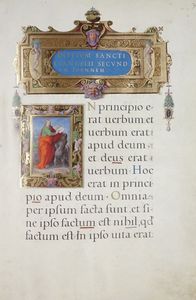 INITIVM SANCTI
EVANGELII SECVND
VM IOANNEM
N principio e
rat uerbum et
uerbum erat
apud deum·
et deus erat
uerbum· Hoc
erat in princi
pio apud deum· Omnia
per ipsum facta sunt· et si
ne ipso factum est nihil, qd
factum est· In ipso uita erat